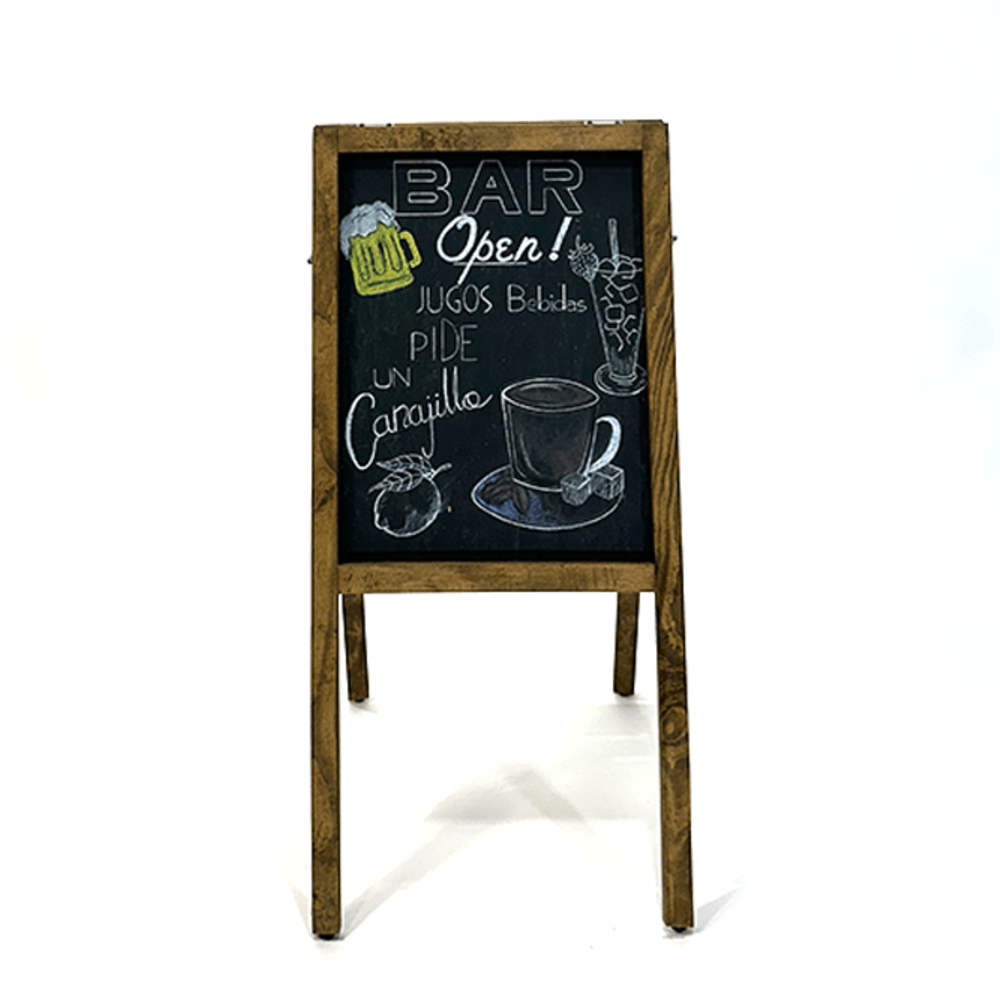 BAR
Open!
JUGOS Bebidas
PIDE
UN
Carajillo